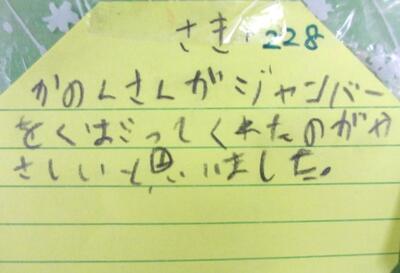 さき 228
かのんさんがジャンバー
をくばってくれたのがや
さしいとおいました。